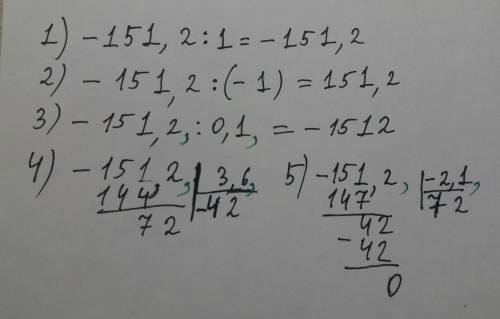 1) -151,2:1=-151,2
2) -151,2:(-1)=151,2
3) -151,2,:0,1,=-1512
4) -151 2, | 3,6,
144, | -42
72
5) -151,2, | -2,1,
147 | 72
42
- 42
0